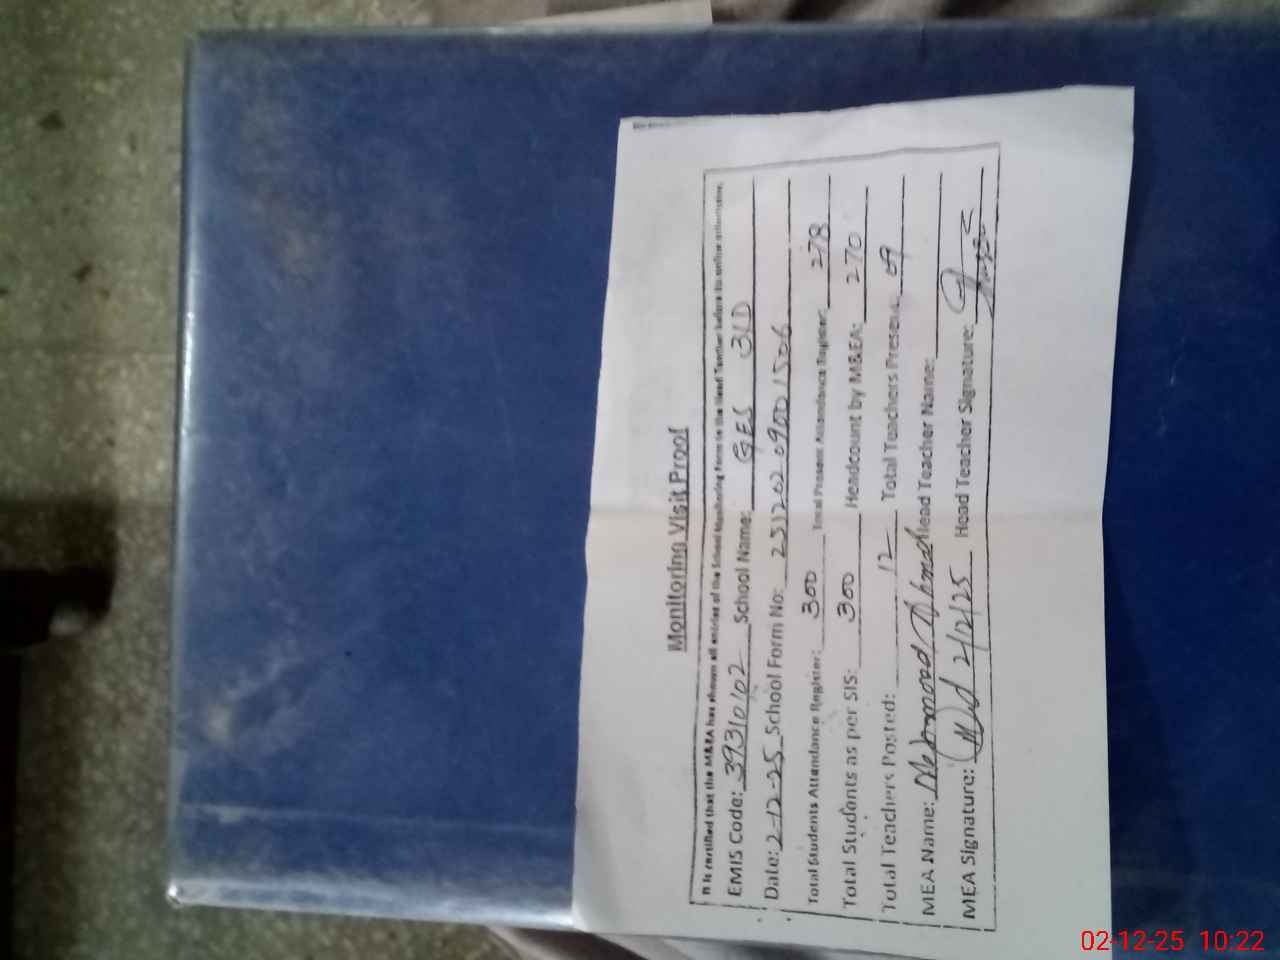 Monitoring Visit Proof
It is certified that the M&EA has shown all entries of the School Monitoring Form to the Head Teacher before its online submission.
EMIS Code: 39310102 School Name: GES 3LD
Date: 2-12-25 School Form No: 2512020900 1506
Total Students Attendance Register: 300 Total Present Attendance Register: 278
Total Students as per SIS: 300 Headcount by M&EA: 270
Total Teachers Posted: 12 Total Teachers Present: 09
MEA Name: Mehmood Ahmed Head Teacher Name:
MEA Signature: 2/12/25 Head Teacher Signature:
02-12-25 10:22